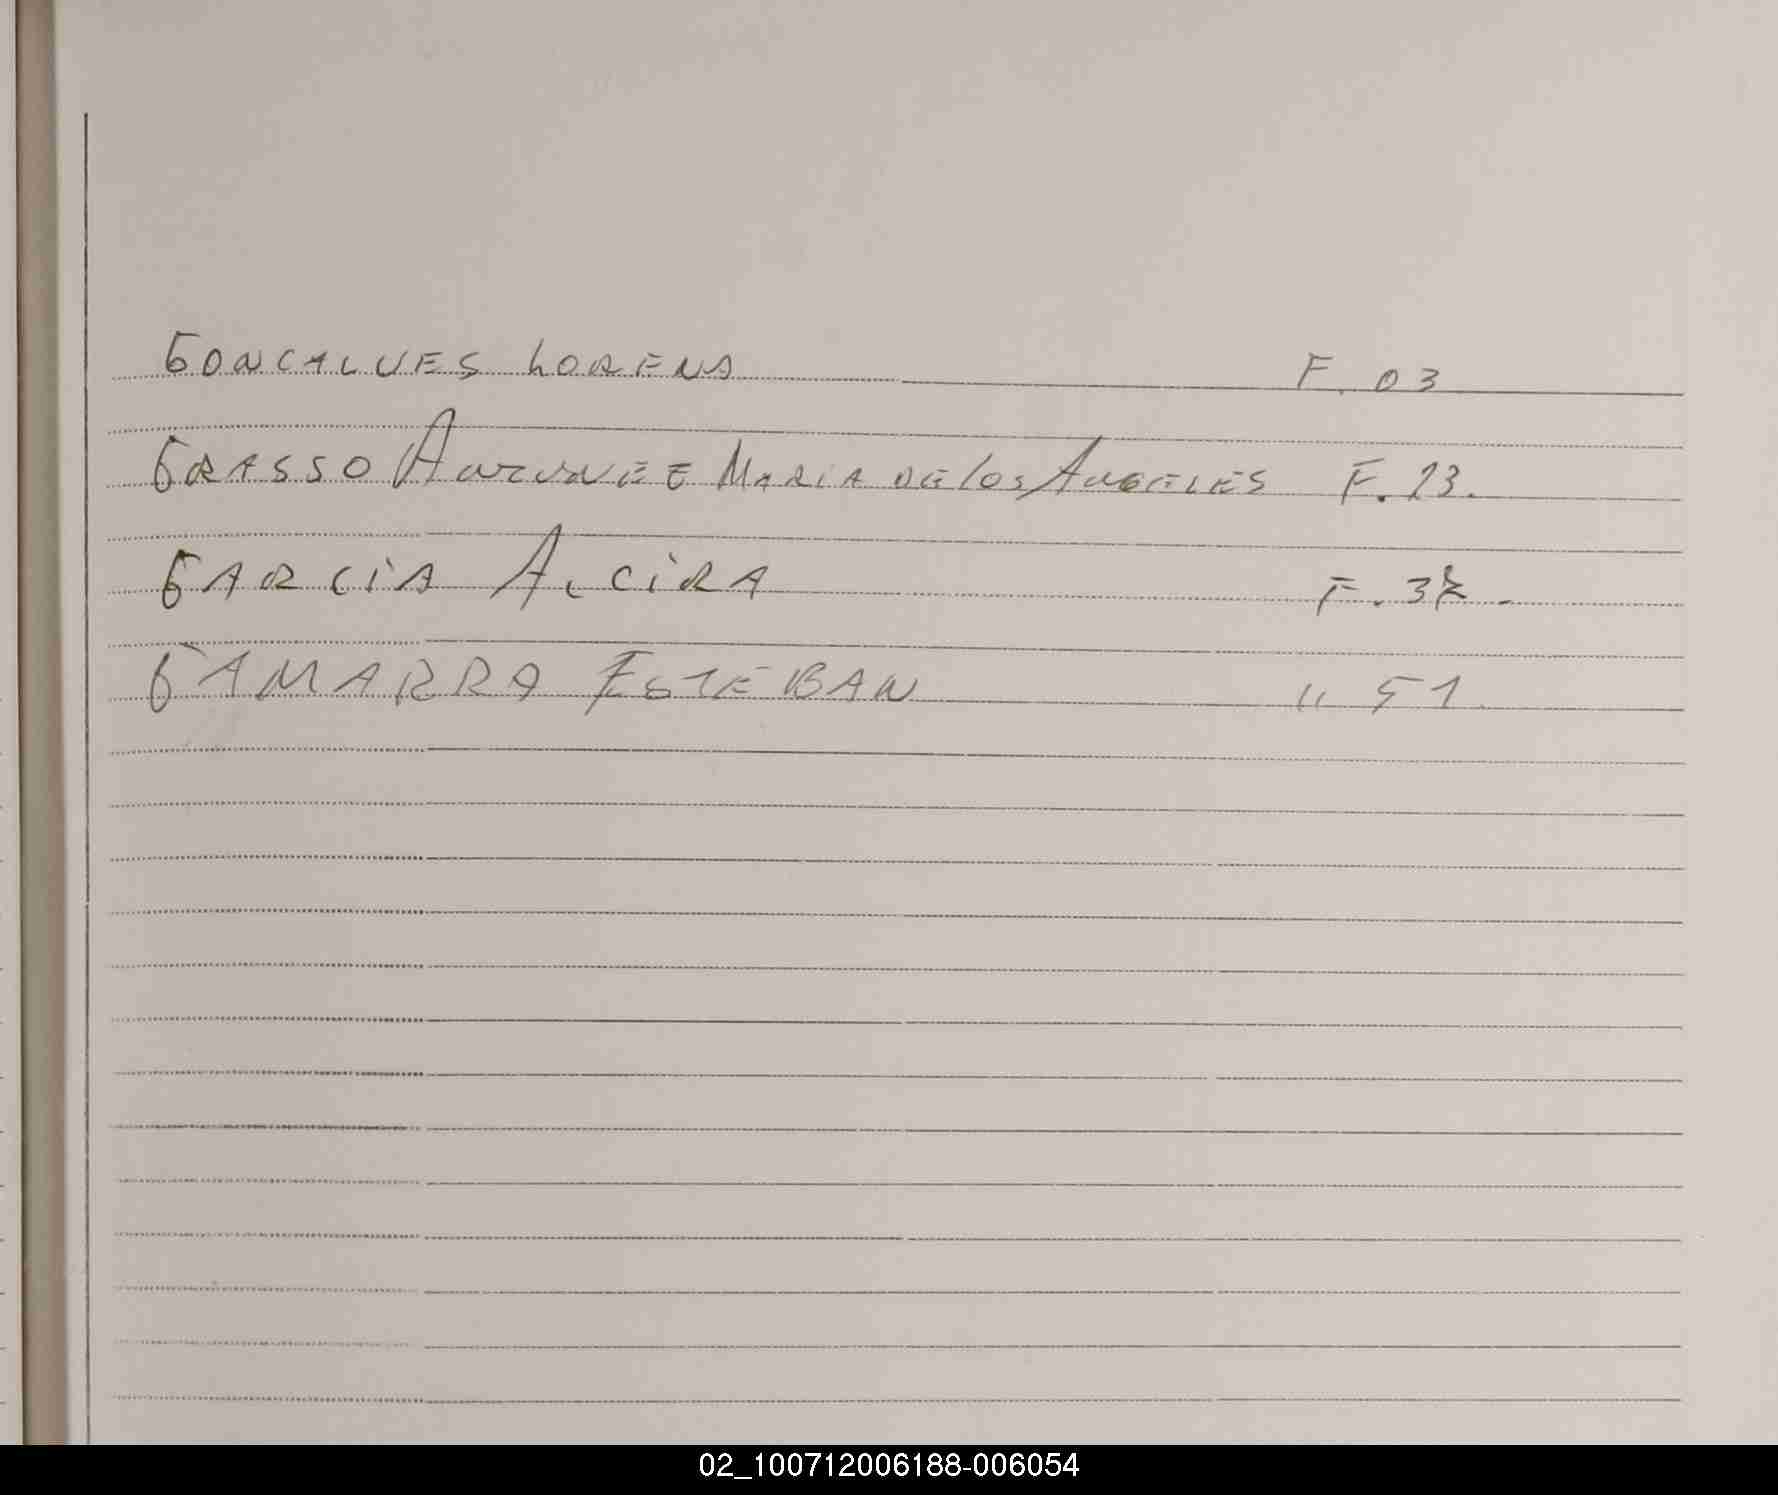 GONCALVES LORENA F. 03
GRASSO MARIA DE LOS ANGELES F. 23.
GARCIA ALCIRA F. 37.
GAMARRA ESTEBAN " 51.
02_100712006188-006054